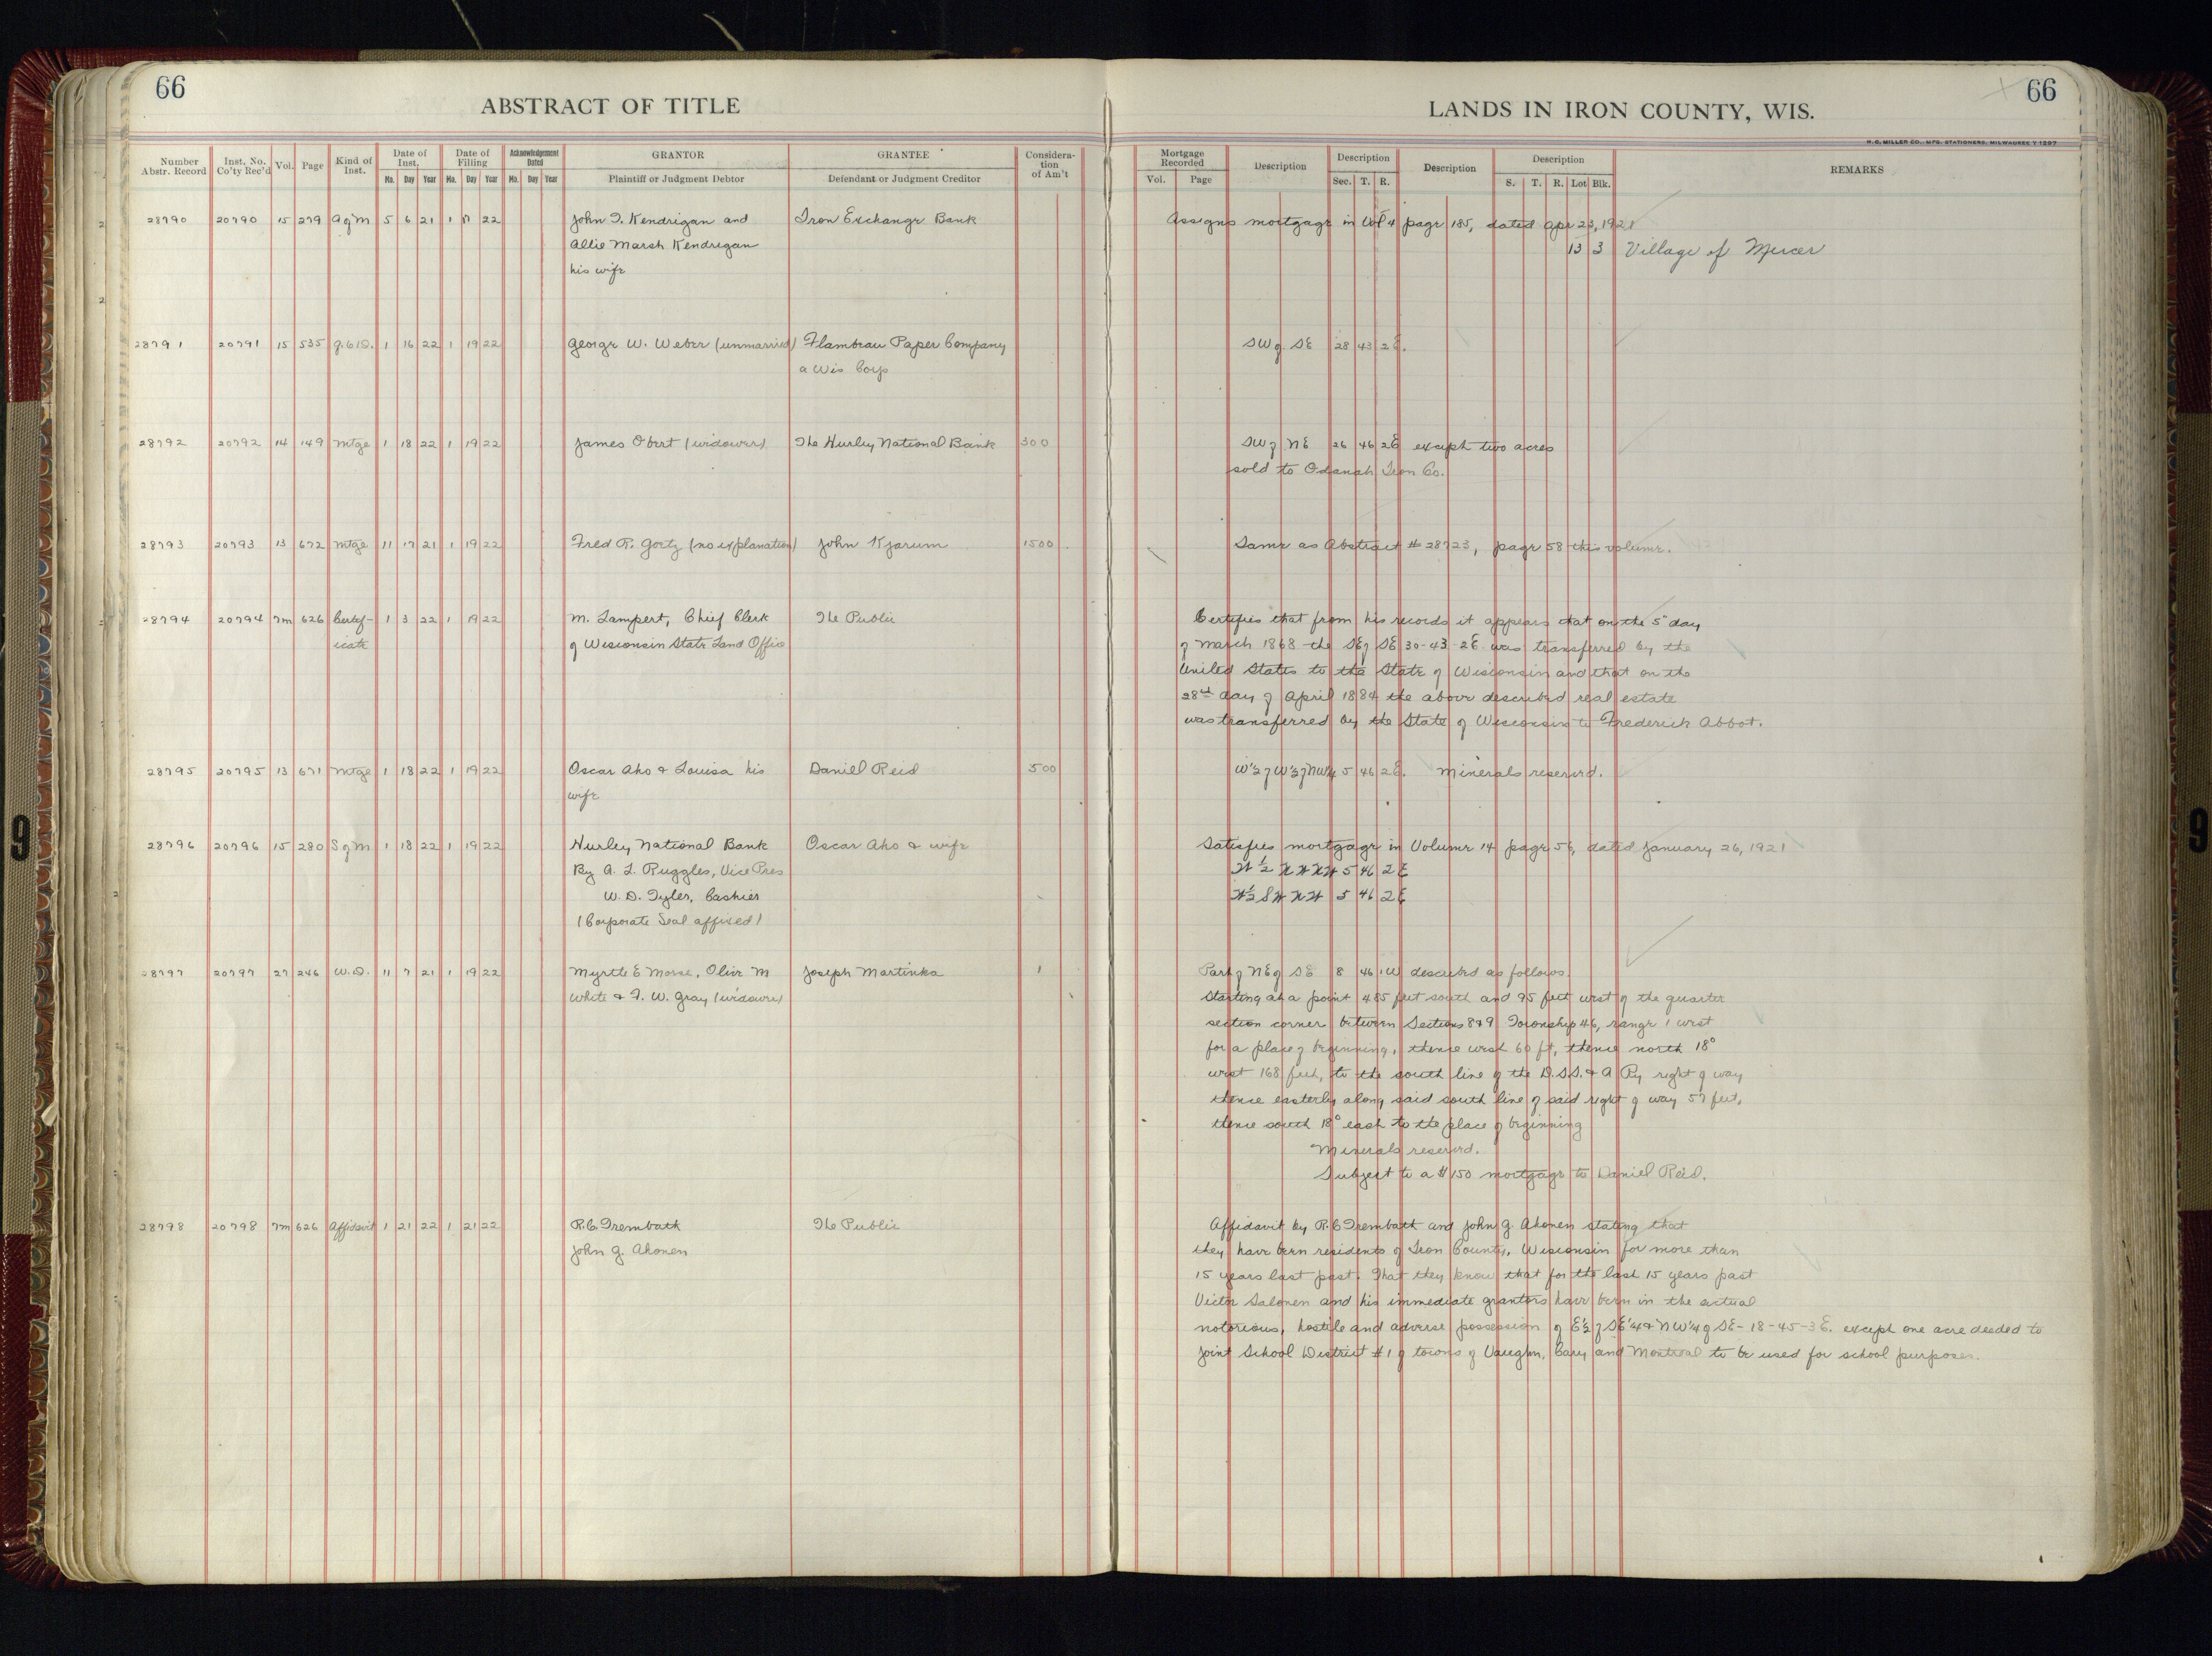 66
ABSTRACT OF TITLE
Number Abstr. Record Inst. No. Co'ty Rec'd Vol. Page Kind of Inst. Date of Inst. Mo. Day Year Date of Filling Mo. Day Year Acknowledgement Dated Mo. Day Year GRANTOR Plaintiff or Judgment Debtor GRANTEE Defendant or Judgment Creditor Consideration of Am't
28790 20790 15 279 A of M 5 6 21 1 22 John T. Kendrigan and Iron Exchange Bank
Allie Marsh Kendrigan
his wife
28791 20791 15 535 1 16 22 1 19 22 George W. Weber (unmarried) Flambeau Paper Company
a Wis Corp
28792 20792 14 149 Mtge 1 18 22 1 19 22 James Obert (widower) The Hurley National Bank 300
28793 20793 13 672 Mtge 11 17 21 1 19 22 Fred R. Goetz (no explanation) John Kjarum 1500
28794 20794 7m 626 Certif- 1 3 22 1 19 22 M. Lampert, Chief Clerk The Public
icate of Wisconsin State Land Office
28795 20795 13 671 Mtge 1 18 22 1 19 22 Oscar Aho & Louisa his Daniel Reid 500
wife
28796 20796 15 280 S of M 1 18 22 1 19 22 Hurley National Bank Oscar Aho & wife
By A. L. Ruggles, Vice Pres
W. D. Tyler, Cashier
(Corporate Seal affixed)
28797 20797 27 246 W.D. 11 7 21 1 19 22 Myrtle E Morse, Olive M Joseph Martinka 1
White & F. W. Gray (widower)
28798 20798 7m 626 Affidavit 1 21 22 1 21 22 R.C. Trembath The Public
John G. Ahonen
66
LANDS IN IRON COUNTY, WIS.
H. C. MILLER CO., MFG. STATIONERS, MILWAUKEE
Mortgage Recorded Vol. Page Description Description Sec. T. R. Description Description S. T. R. Lot Blk. REMARKS
Assigns mortgage in Vol 4 page 185, dated Apr 23, 1921
13 3 Village of Mercer
SW of SE 28 43 2E.
SW of NE 26 46 2E except two acres
sold to Odanah Iron Co.
Same as Abstract # 28723, page 58 this volume.
Certifies that from his records it appears that on the 5" day
of March 1868 the SE of SE 30-43-2E. was transferred by the
United States to the State of Wisconsin and that on the
28th day of April 1884 the above described real estate
was transferred by the State of Wisconsin to Frederich Abbot.
W½ of W½ of NW¼ 5 46 2E. Minerals reserved.
Satisfies mortgage in Volume 14 page 56, dated January 26, 1921
W ½ NW NW 5 46 2E
W½ SW NW 5 46 2E
Part of NE of SE 8 46 1W described as follows.
Starting at a point 485 feet south and 95 feet west of the quarter
section corner between Sections 8&9 Township 46, range 1 west
for a place of beginning, thence west 60 ft, thence north 18°
west 168 feet, to the south line of the D.S.S. & A Ry right of way
thence easterly along said south line of said right of way 57 feet,
thence south 18° east to the place of beginning
Minerals reserved.
Subject to a $150 mortgage to Daniel Reid.
Affidavit by R.C Trembath and John G. Ahonen stating that
they have been residents of Iron County, Wisconsin for more than
15 years last past. That they know that for the last 15 years past
Victor Salonen and his immediate grantors have been in the actual
notorious, hostile and adverse possession of E½ of SE¼ & NW¼ of SE- 18-45-3E. except one acre deeded to
Joint School District #1 of towns of Vaughn, Cary and Montreal to be used for school purposes.
9
9